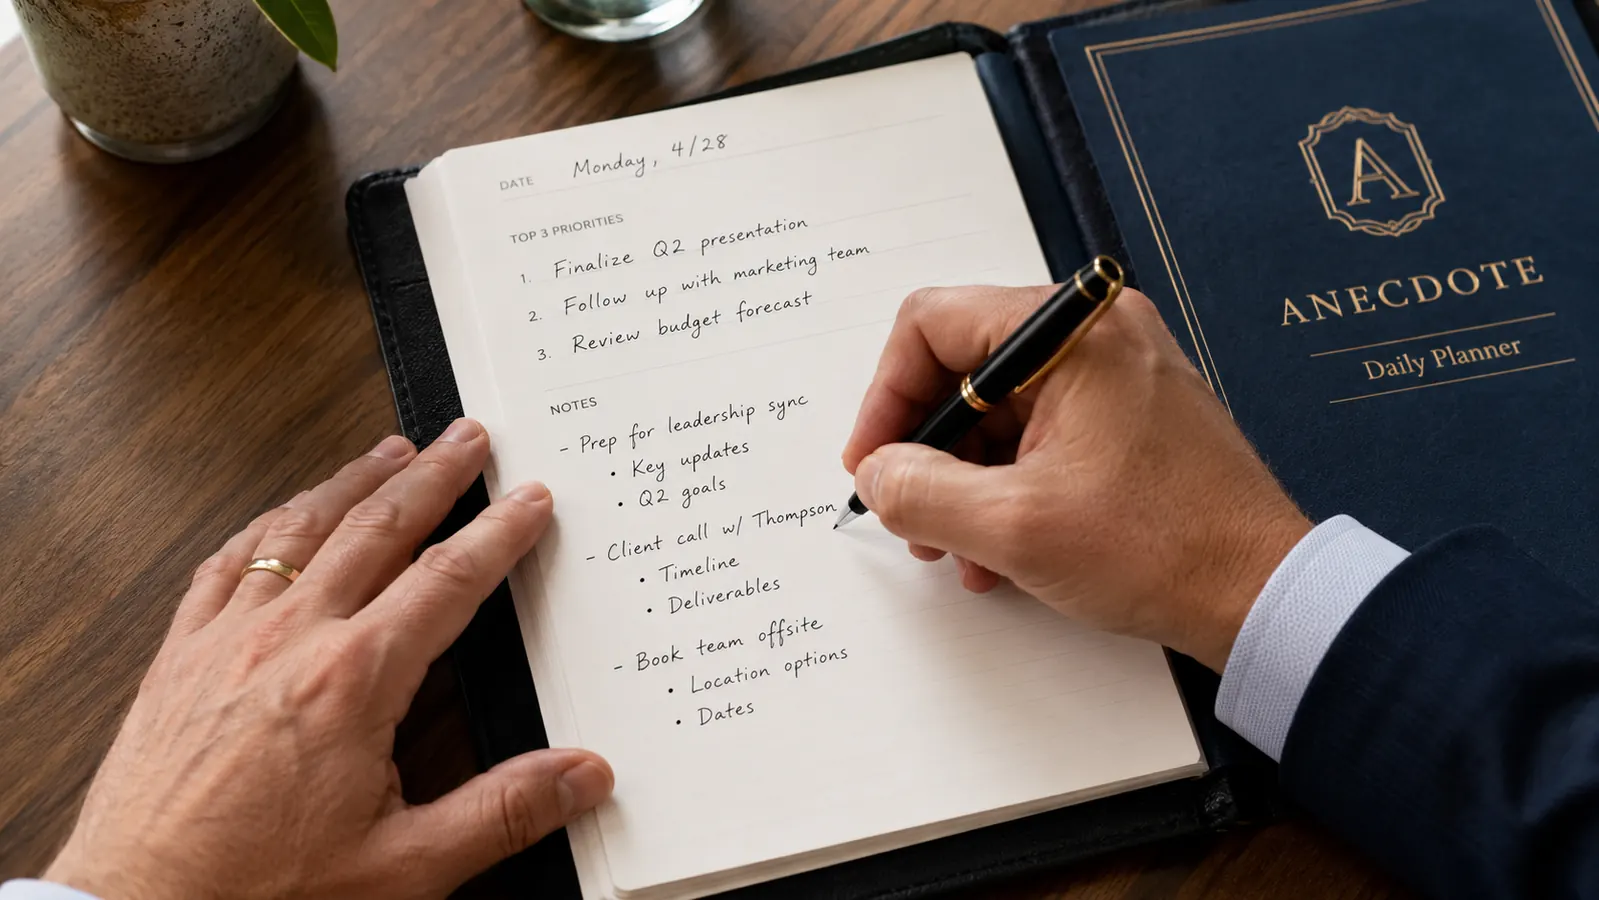 DATE Monday, 4/28
TOP 3 PRIORITIES
1. Finalize Q2 presentation
2. Follow up with marketing team
3. Review budget forecast
NOTES
- Prep for leadership sync
• Key updates
• Q2 goals
- Client call w/ Thompson
• Timeline
• Deliverables
- Book team offsite
• Location options
• Dates
A
ANECDOTE
Daily Planner